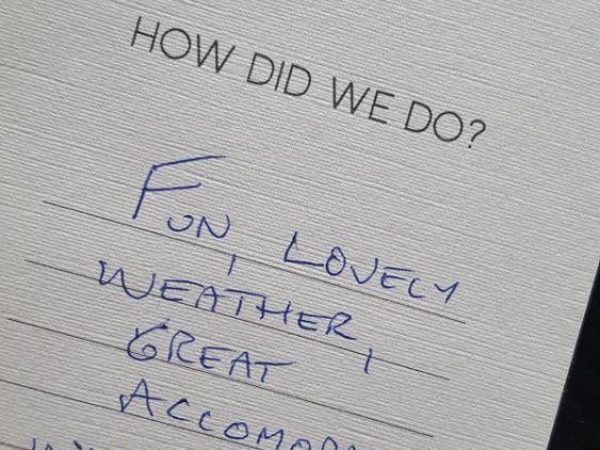 HOW DID WE DO?
FUN, LOVELY
WEATHER,
GREAT